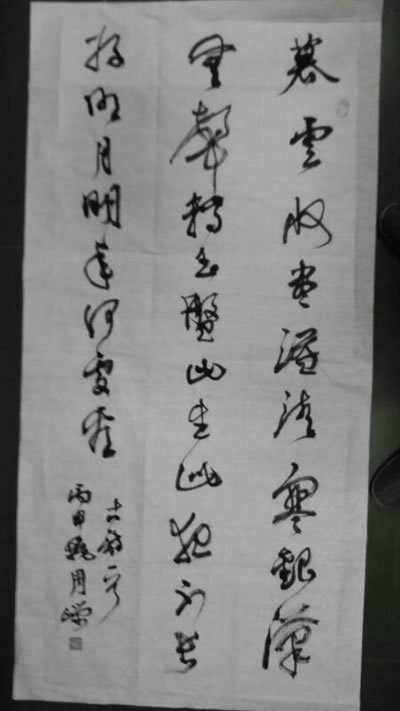 暮雲收盡溢清寒銀漢
無聲轉玉盤此生此夜不長
好明月明年何處看
古詩一首
丙申